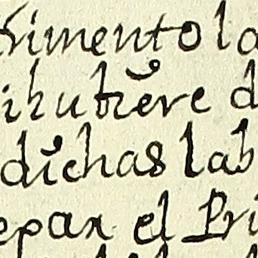 rimento la
ibutiere d
dichas lab
epan el Pri